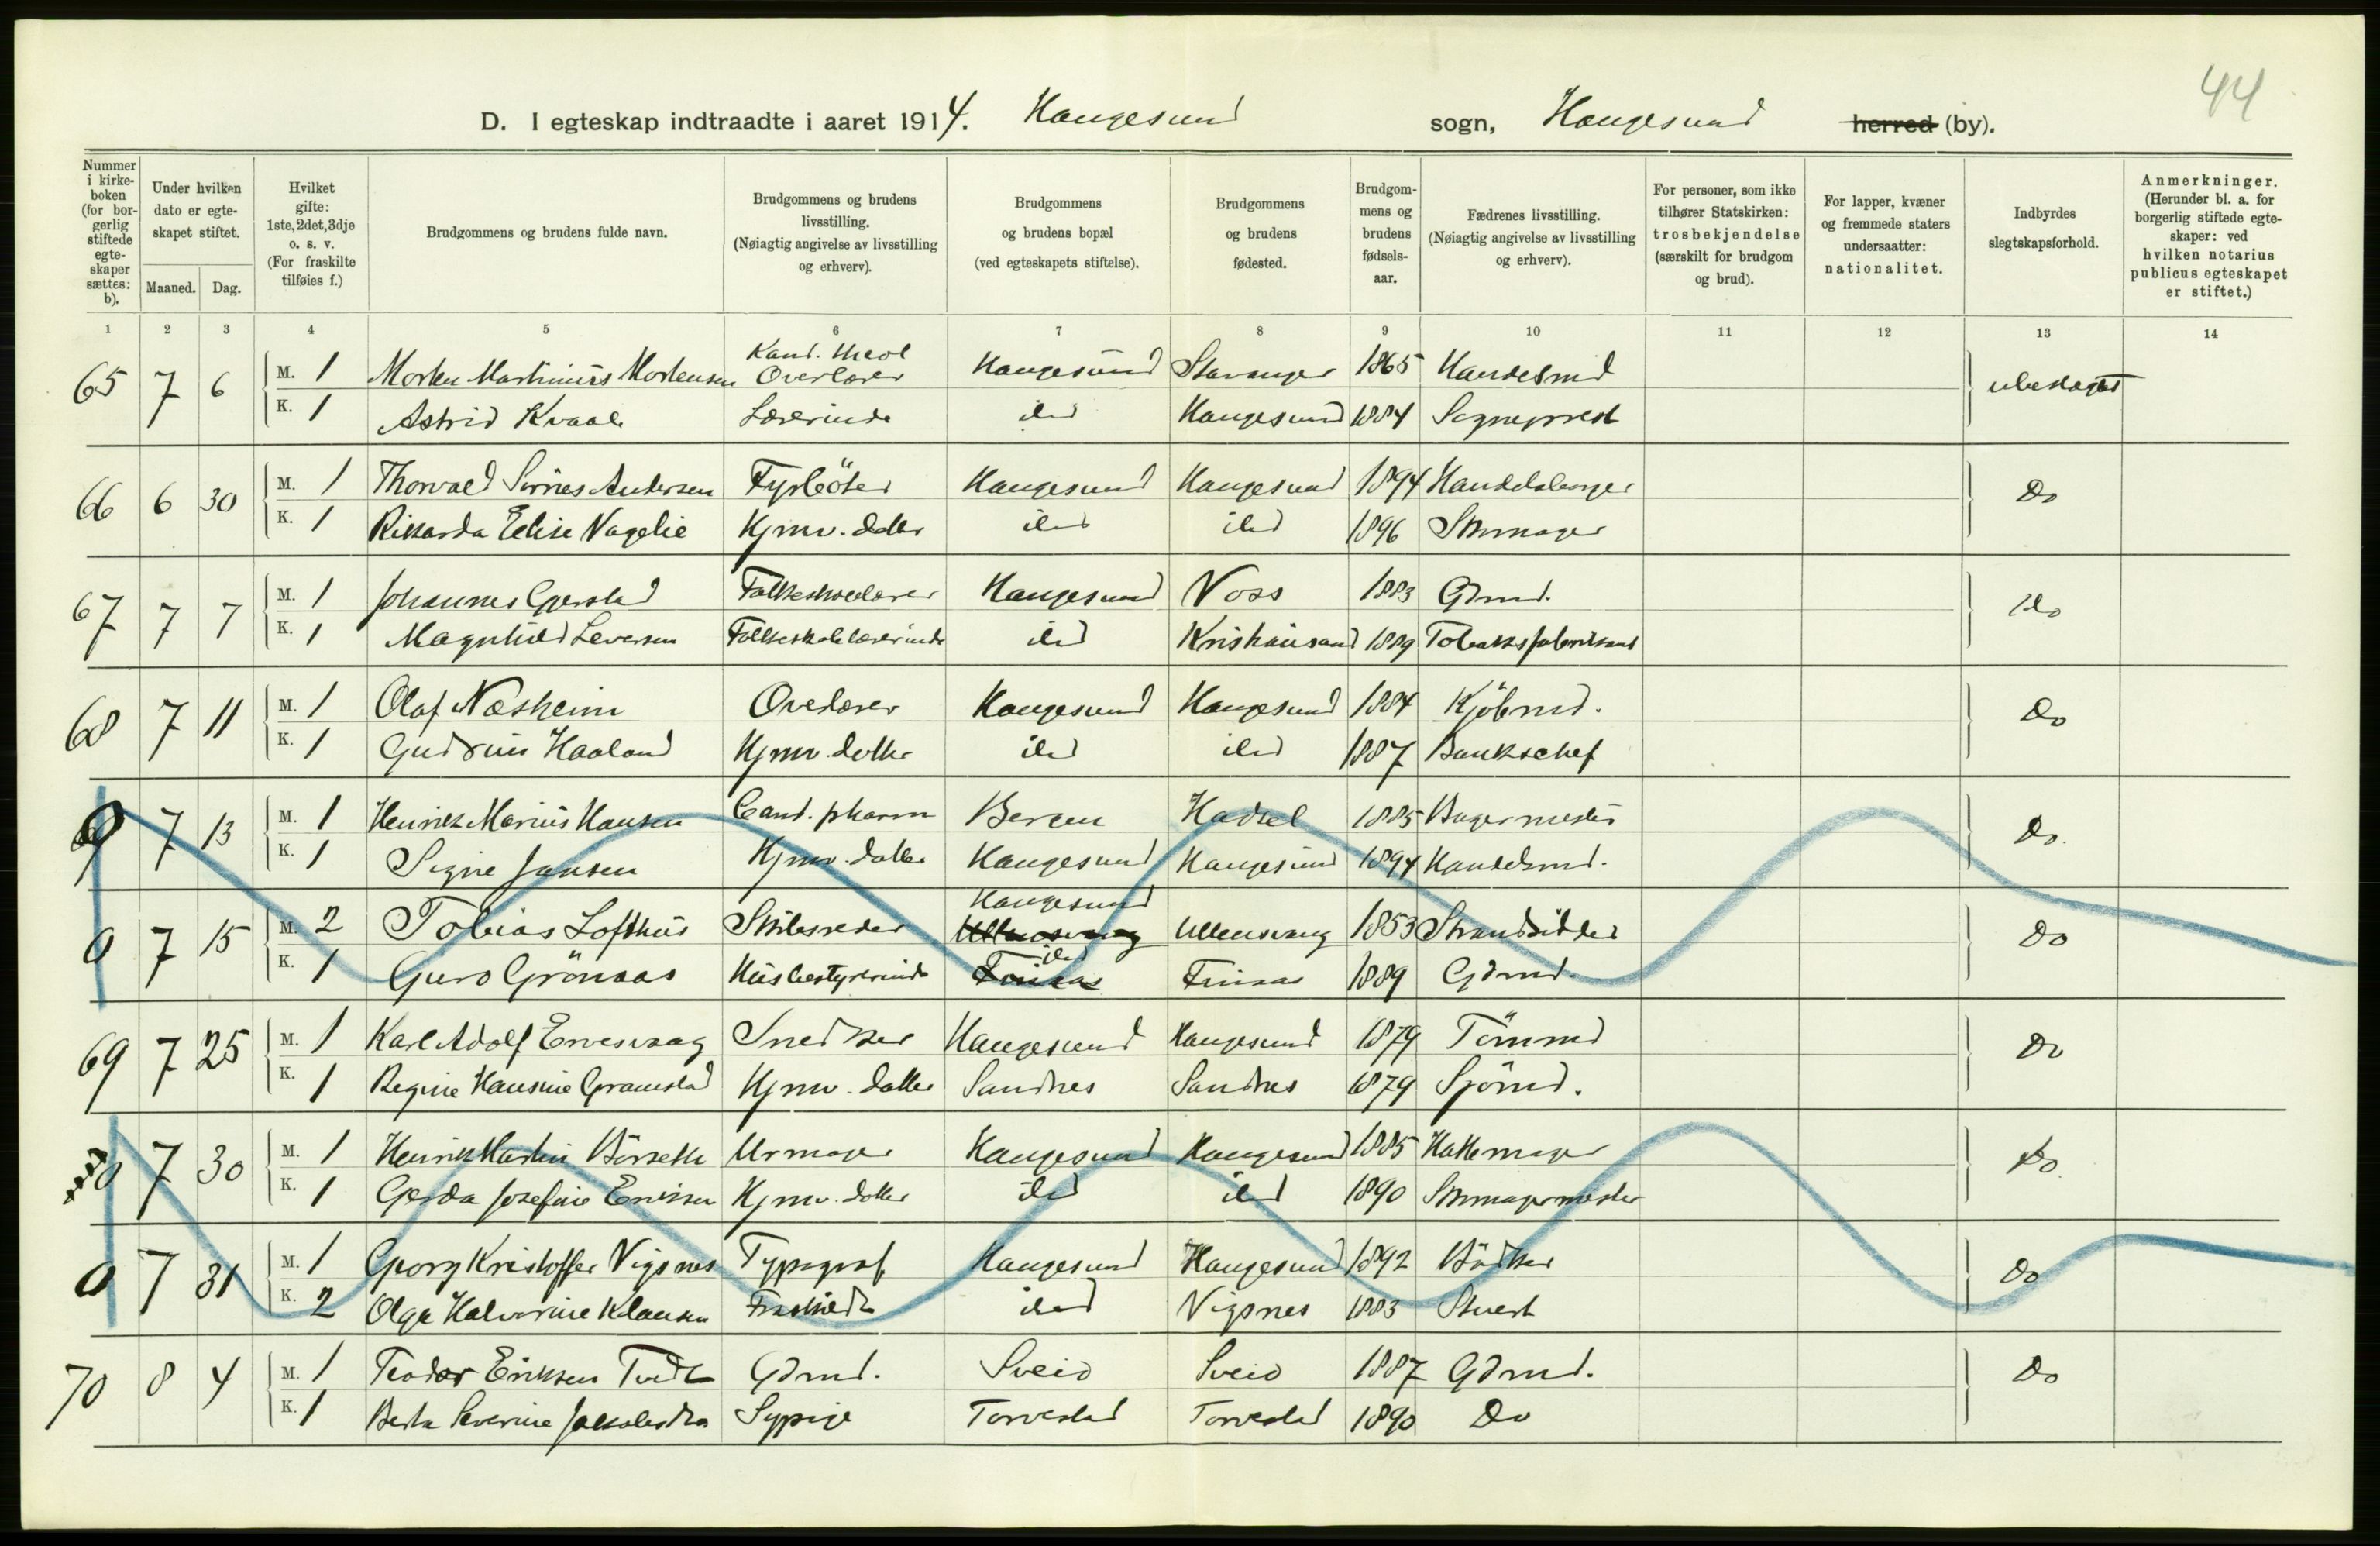 44
D. I egteskap indtraadte i aaret 1914. Haugesund sogn, Haugesund herred (by).
Nummer i kirke-boken (for bor-gerlig stiftede egte-skaper sættes: b).
Under hvilken dato er egte-skapet stiftet.
Maaned. Dag.
Hvilket gifte: 1ste, 2det, 3dje o. s. v. (For fraskilte tilføies f.)
Brudgommens og brudens fulde navn.
Brudgommens og brudens livsstilling. (Nøiagtig angivelse av livsstilling og erhverv).
Brudgommens og brudens bopæl (ved egteskapets stiftelse).
Brudgommens og brudens fødested.
Brudgom-mens og brudens fødsels-aar.
Fædrenes livsstilling. (Nøiagtig angivelse av livsstilling og erhverv).
For personer, som ikke tilhører Statskirken: trosbekjendelse (særskilt for brudgom og brud).
For lapper, kvæner og fremmede staters undersaatter: nationalitet.
Indbyrdes slegtskapsforhold.
Anmerkninger. (Herunder bl. a. for borgerlig stiftede egte-skaper: ved hvilken notarius publicus egteskapet er stiftet.)
1 2 3 4 5 6 7 8 9 10 11 12 13 14
65 7 6 M. 1 Morten Martinius Mortensen Kand. theol Overlærer Haugesund Stavanger 1865 Handelsmd ubeslægtet
K. 1 Astrid Kvaale Lærerinde ibid Haugesund 1884 Sogneprest
66 6 30 M. 1 Thorvald Andersen Fyrbøter Haugesund Haugesund 1894 Handelsborger Do
K. 1 Rikarda Elise Vagelie Hjmv. datter ibid ibid 1896 Skomager
67 7 7 M. 1 Johannes Gjerstad Folkeskolelærer Haugesund Voss 1883 Gdmd. Do
K. 1 Magnhild Seversen Folkeskolelærerinde ibid Kristiansand 1889 Tobaksfabrikant
68 7 11 M. 1 Olaf Næsheim Overlærer Haugesund Haugesund 1884 Kjöbmd. Do
K. 1 Gudrun Haaland Hjmv. datter ibid ibid 1887 Bankschef
7 13 M. 1 Henrik Marius Hansen Cand. pharm Bergen Hadsel 1885 Bagermester Do.
K. 1 Signe Jansen Hjmv. datter Haugesund Haugesund 1894 Handelsmd.
0 7 15 M. 2 Tobias Lofthus Skibsreder Haugesund Ullensvang Ullensvang 1853 Strandsidder Do
K. 1 Guro Grönaas Husbestyrerinde ibid Finaas Finaas 1889 Gdmd.
69 7 25 M. 1 Karl Adolf Ervesvaag Snedker Haugesund Haugesund 1879 Tömmd Do
K. 1 Regine Hansine Gramstad Hjmv. datter Sandnes Sandnes 1879 Sjömd.
0 7 30 M. 1 Henrik Martin Börseth Urmager Haugesund Haugesund 1885 Hattemager Do
K. 1 Gerda Josefine Eriksen Hjmv. datter ibid ibid 1890 Skomagermester
0 7 31 M. 1 Georg Kristoffer Vigsnes Typograf Haugesund Haugesund 1892 Bödker Do
K. 2 Olga Halvorine Klausen Fraskildt ibid Vigsnes 1883 Stuert
70 8 4 M. 1 Teodor Eriksen Tvedt Gdmd. Sveio Sveio 1887 Gdmd. Do
K. 1 Berta Severine Jakobsdtr Sypige Torvestad Torvestad 1890 Do